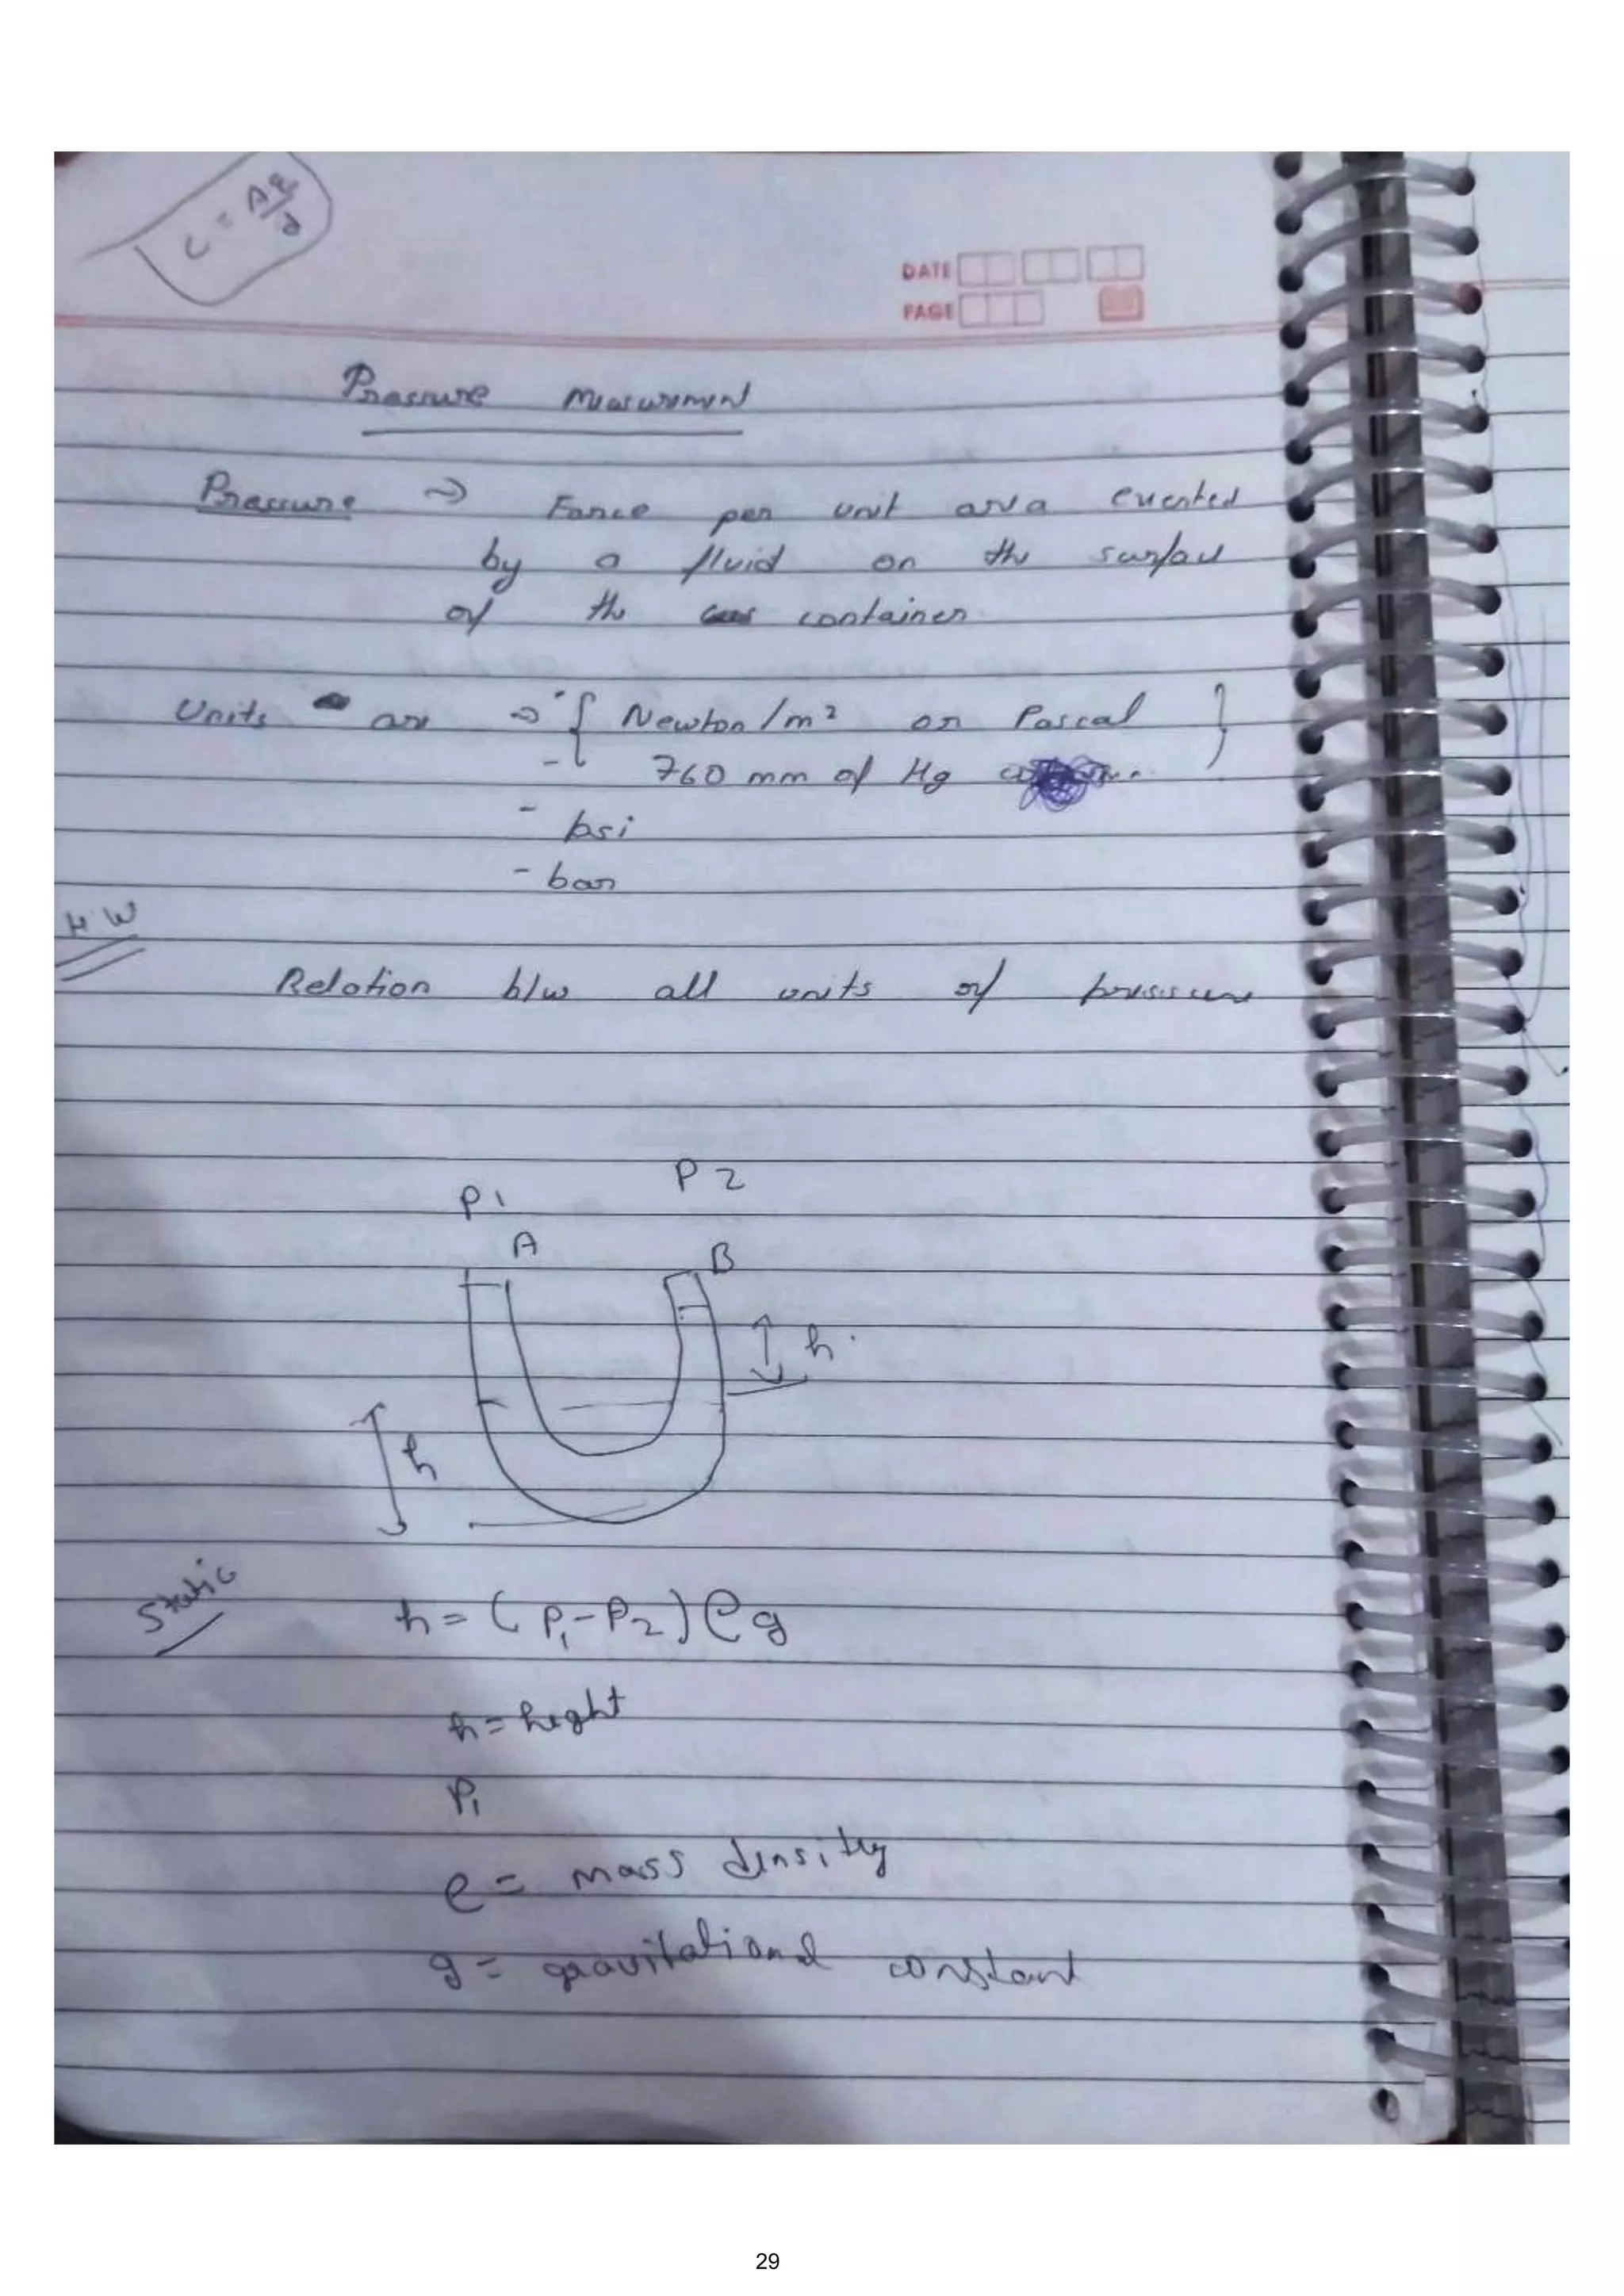 C = Aε/d
DATE
PAGE
Pressure Measurment
Pressure ⇒ Force per unit area exerted
by a fluid on the surface
of the container
Units are ⇒ { Newton/m² or Pascal }
- 760 mm of Hg
- psi
- bar
H W
Relation b/w all units of pressure
P1 P2
A B
h
h
Static
h = (P₁-P₂)ρg
h = hight
P₁
ρ = mass density
g = gravitational constant
29